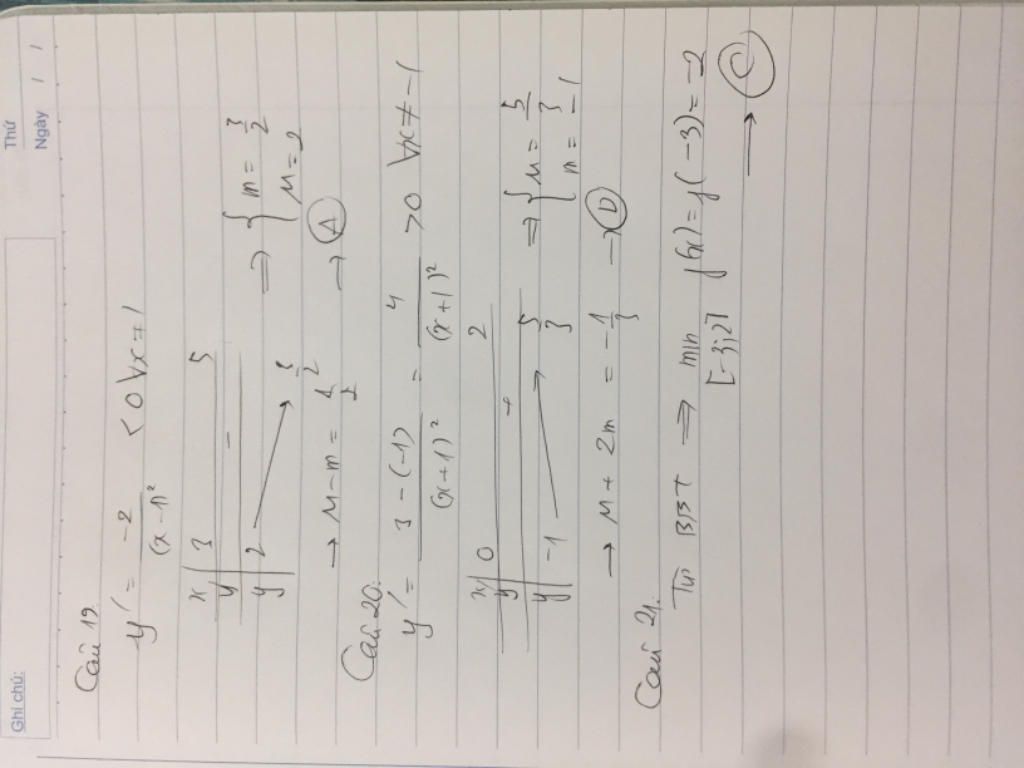 Ghi chú:
Thứ
Ngày / /
Câu 19.
y' = -2 / (x-1)² < 0 ∀x ≠ 1
x | 3 5
y' | -
y | 2 → 3/2 => { m = 3/2
M = 2
→ M - m = 1/2 → A
Câu 20.
y' = 3-(-1) / (x+1)² = 4 / (x+1)² > 0 ∀x ≠ -1
x | 0 2
y' | +
y | -1 → 5/3 => { M = 5/3
m = -1
→ M + 2m = -1/3 → D
Câu 21.
Từ BBT => min f(x) = f(-3) = -2
[-3;2]
→ C